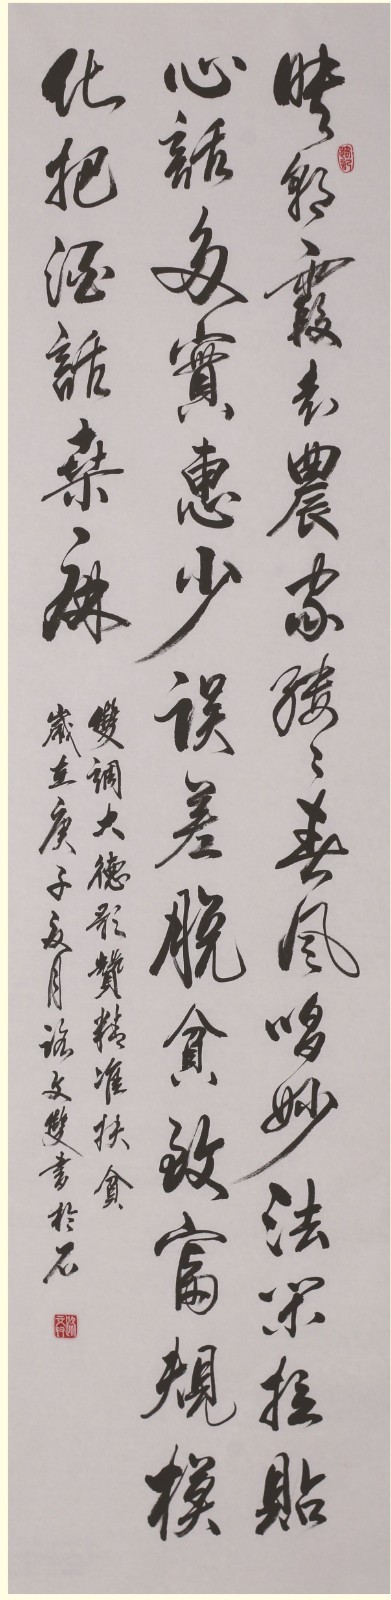 映朝霞去農家縷〻春風唱妙法閑拉貼
心話多實惠少誤差脫貧致富規模
化把酒話桑麻
雙調大德歌贊精准扶貧
歲在庚子夏月路文雙書於石